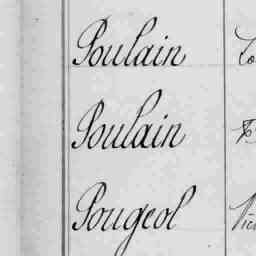 Poulain
Poulain
Pougeol